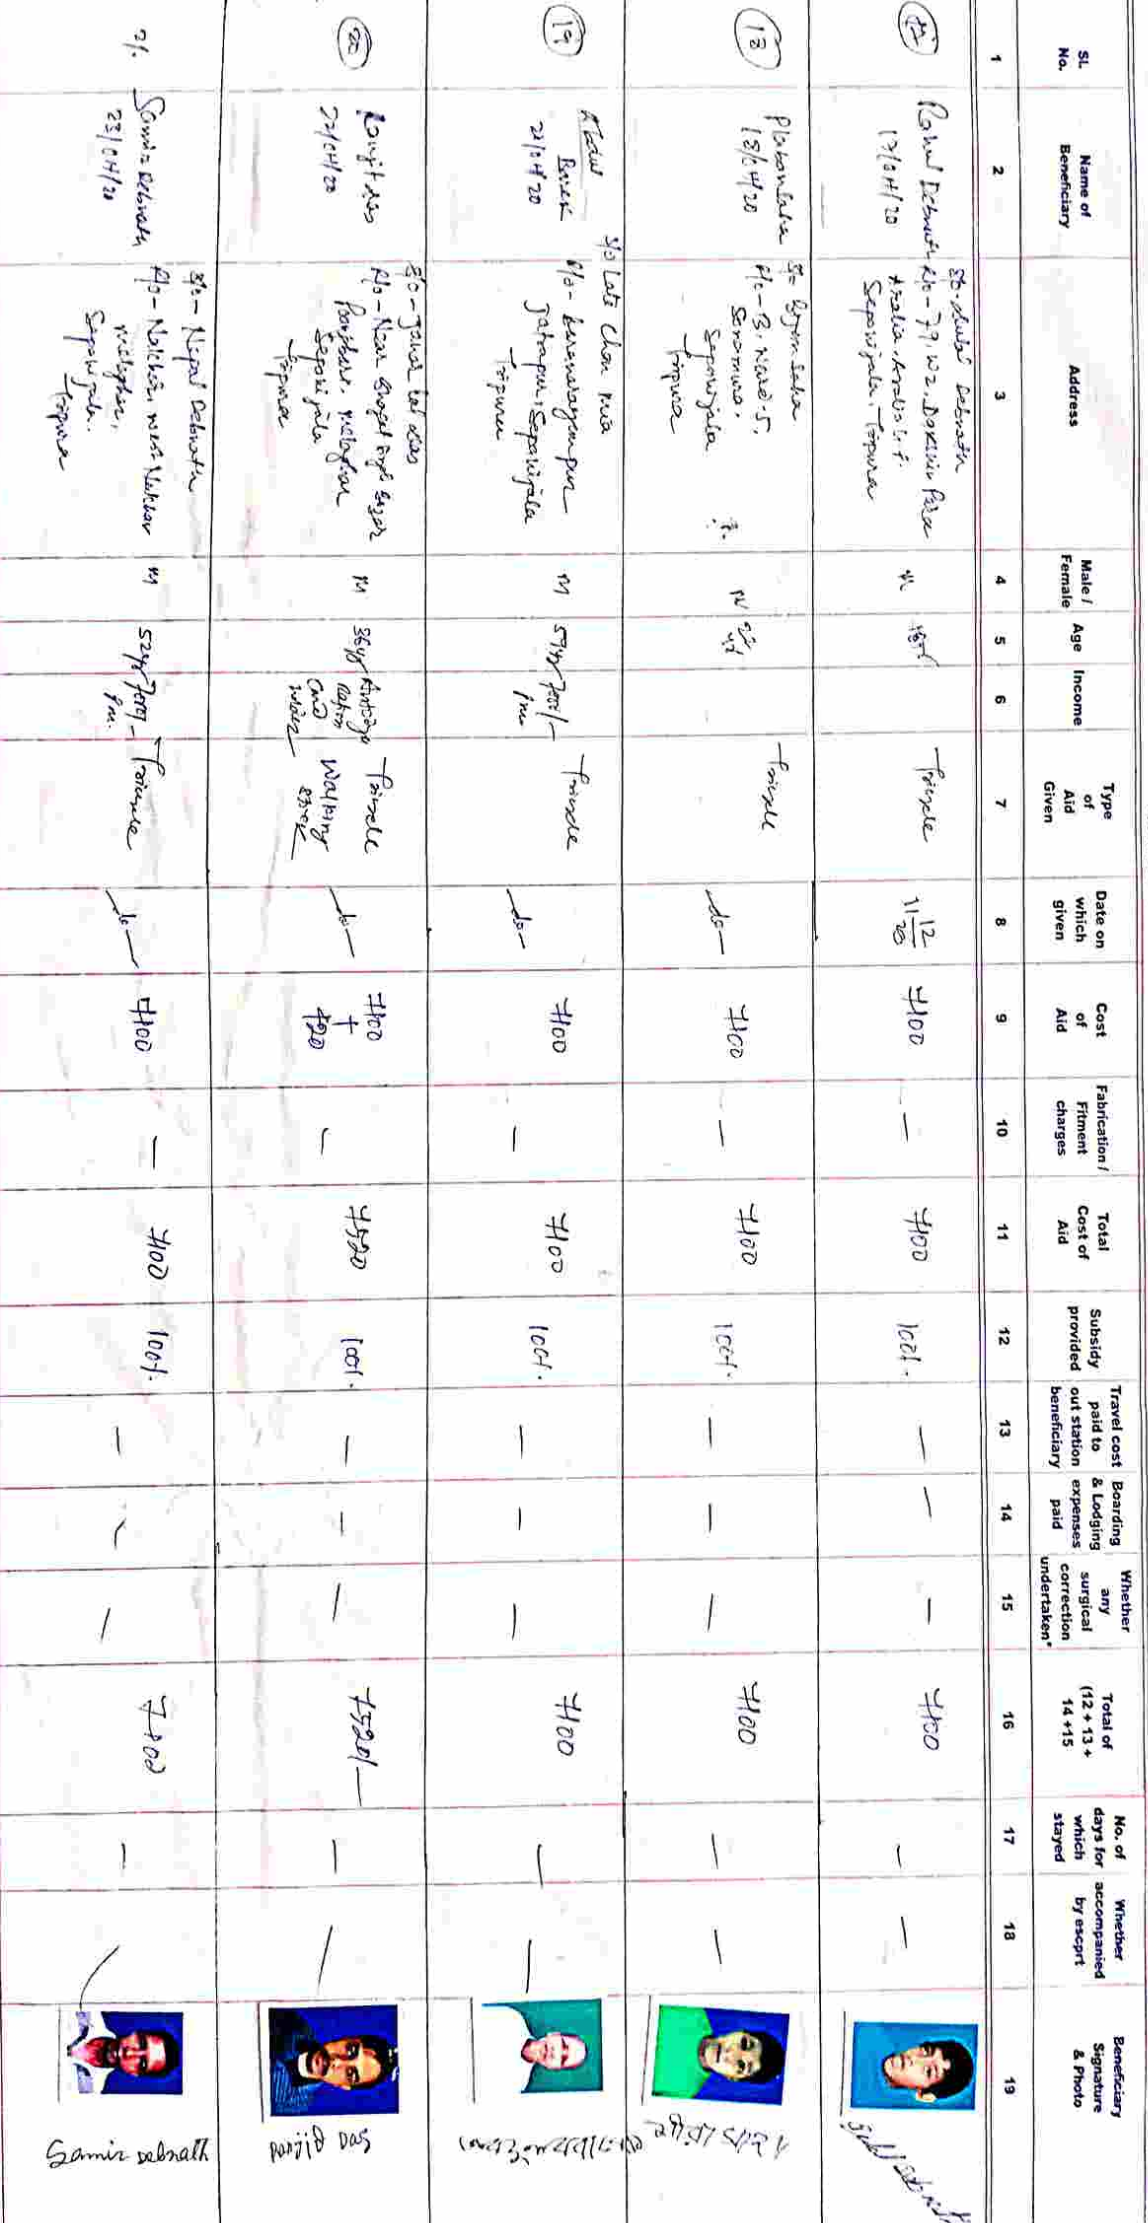 SL No.
Name of Beneficiary
Address
Male / Female
Age
Income
Type of Aid Given
Date on which given
Cost of Aid
Fabrication / Fitment charges
Total Cost of Aid
Subsidy provided
Travel cost paid to out station beneficiary
Boarding & Lodging expenses paid
Whether any surgical correction undertaken*
Total of (12 + 13 + 14 +15
No. of days for which stayed
Whether accompanied by escprt
Beneficiary Signature & Photo
1 2 3 4 5 6 7 8 9 10 11 12 13 14 15 16 17 18 19
17
Rahul Debnath
17/04/20
Debnath
R/o - 79, W2, Dakshin Para
Aralia
Sepahijala, Tripura
M
Tricycle
11 12 20
7100
—
7100
100%.
—
—
—
7100
—
—
18
Plabon Saha
18/04/20
Saha
R/o - B, ward-5,
Sonamura,
Sepahijala
Tripura
M
Tricycle
-do-
7100
—
7100
100%.
—
—
—
7100
—
—
19
Abdul Barek
21/04/20
S/o Late Chan Mia
R/o -
Jatrapur, Sepahijala
Tripura
M
59yr
7000/-
P.m
Tricycle
-do-
7100
—
7100
100%.
—
—
—
7100
—
—
20
Ranjit das
22/04/20
S/o - Jahar Lal das
R/o - Near
Melaghar
Sepahijala
Tripura
M
36yr
Ration
Card
holder
Tricycle
Walking
stick
-do-
7100
+
420
—
7520
100%.
—
—
—
7520/-
—
—
Ranjit Das
21.
Samir Debnath
23/04/20
S/o - Nepal Debnath
R/o - Nalchar, West Nalchar
Melaghar,
Sepahijala.
Tripura
M
52yr
7000/-
P.m.
Tricycle
-do-
7100
—
7100
100%.
—
—
—
7100
—
—
Samir Debnath